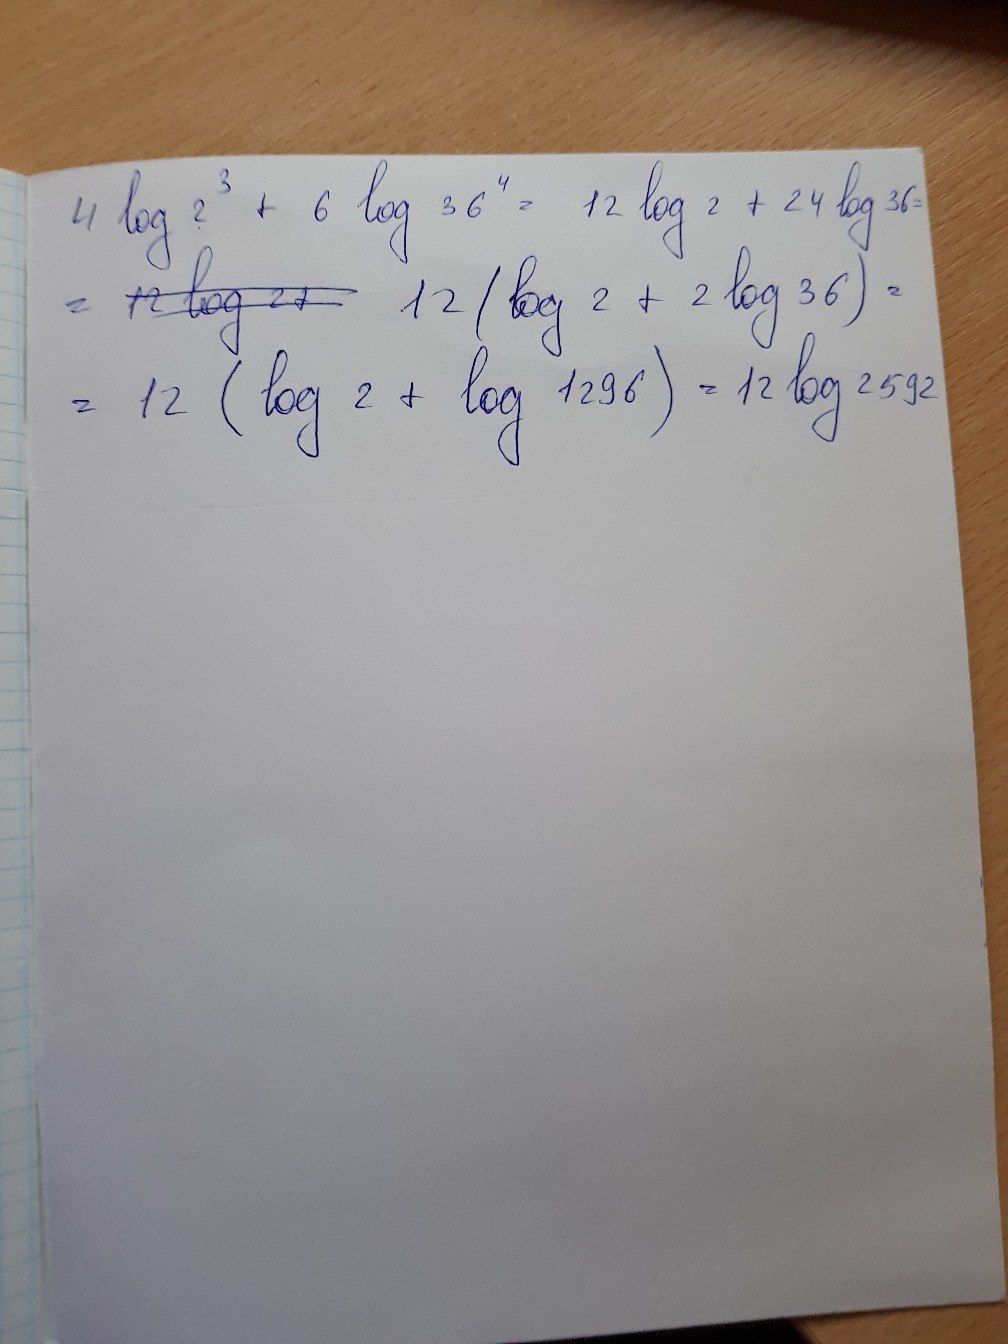 4 log 2³ + 6 log 36⁴ = 12 log 2 + 24 log 36 =
= 12 (log 2 + 2 log 36) =
= 12 (log 2 + log 1296) = 12 log 2592